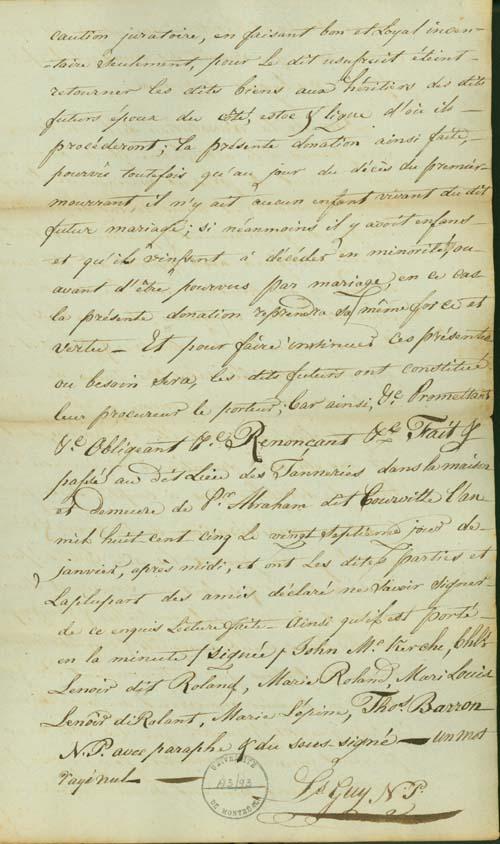 caution juratoire, en faisant bon et Loyal inven-
-taire Seulement, pour Le dit usufruit éteint-
retourner les dits biens aux héritiers des dits
futurs époux du côté, estoc & ligne d'où ils-
procéderont; La présente donation ainsi faite,
pourvû toutefois qu'au jour du décès du premier-
mourrant, il n'y ait aucun enfant vivant du dit
futur mariage; si néanmoins il y avoit enfans-
et qu'ils vinssent à décéder en minorité, ou
avant d'être pourvus par mariage, en ce cas
la présente donation reprendra sa même force et
vertu- Et pour faire insinuer ces présentes
ou besoin Sera, les dits futurs ont constitué
leur procureur le porteur, Car ainsi, &c. Promettant
&c. Obligeant &c. Renonçant &c. Fait &
passé au dit Lieu des Tanneries dans la maison
et demeure de Pr. Abraham dit Courville L'an
mil huit-cent cinq Le vingt Septieme jour de-
janvier, après midi, et ont Les dites parties et
La plupart des amis déclaré ne Savoir Signer
de ce enquis Lecture faite- Ainsi qu'il est porté-
en la minute / signée / John Mc. Kerche, Chls.
Lenoir dit Roland, Marie Roland, Mari Louise
Lenoir di Rolant, Marie Lépine, Thos. Barron
N.P. avec paraphe & du sous-signé — un mot
rayé nul —
Ls. Guy N.P.
UNIVERSITÉ
DE MONTRÉAL